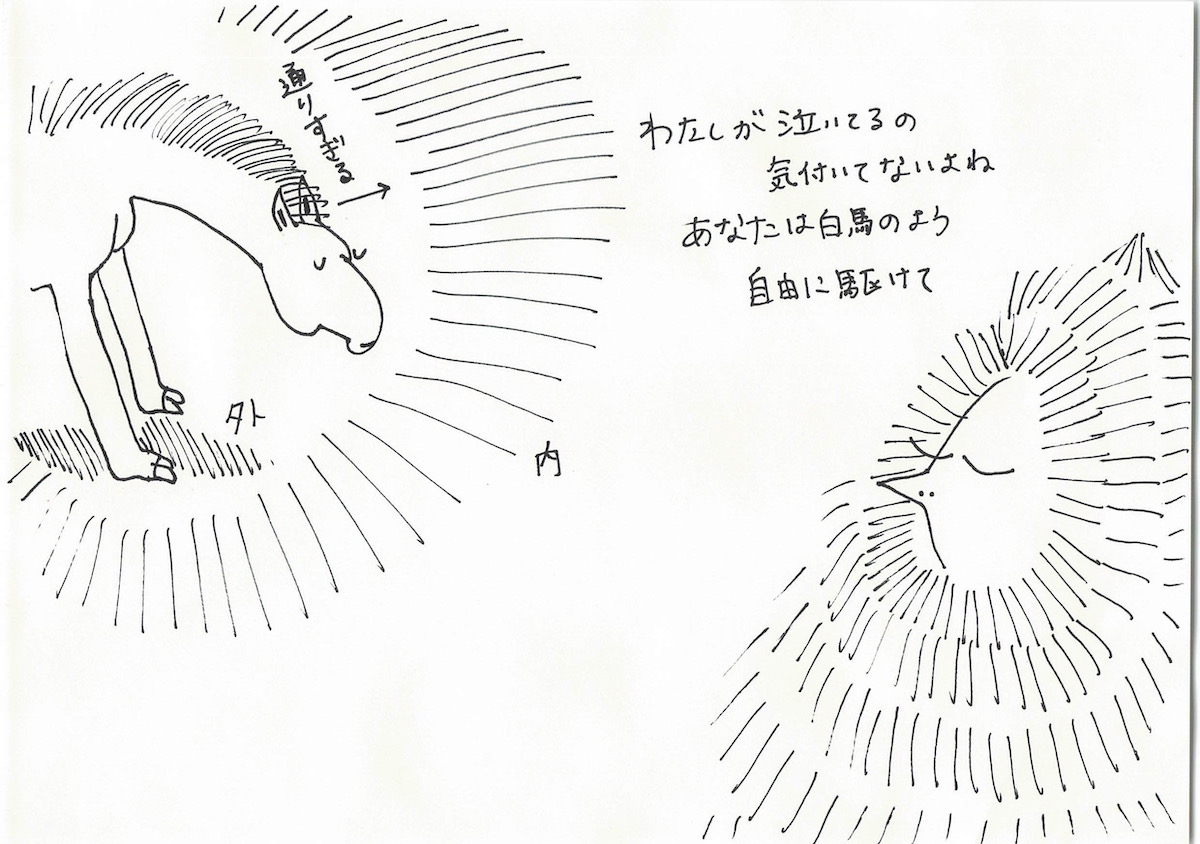 通りすぎる
わたしが泣いてるの
気付いてないよね
あなたは白馬のよう
自由に駆けて
外
内